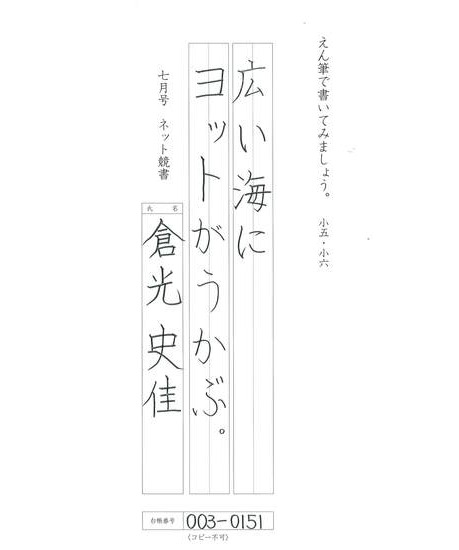 えん筆で書いてみましょう。 小五・小六
広い海に
ヨットがうかぶ。
七月号 ネット競書
氏名
倉光史佳
台帳番号 003-0151
〈コピー不可〉